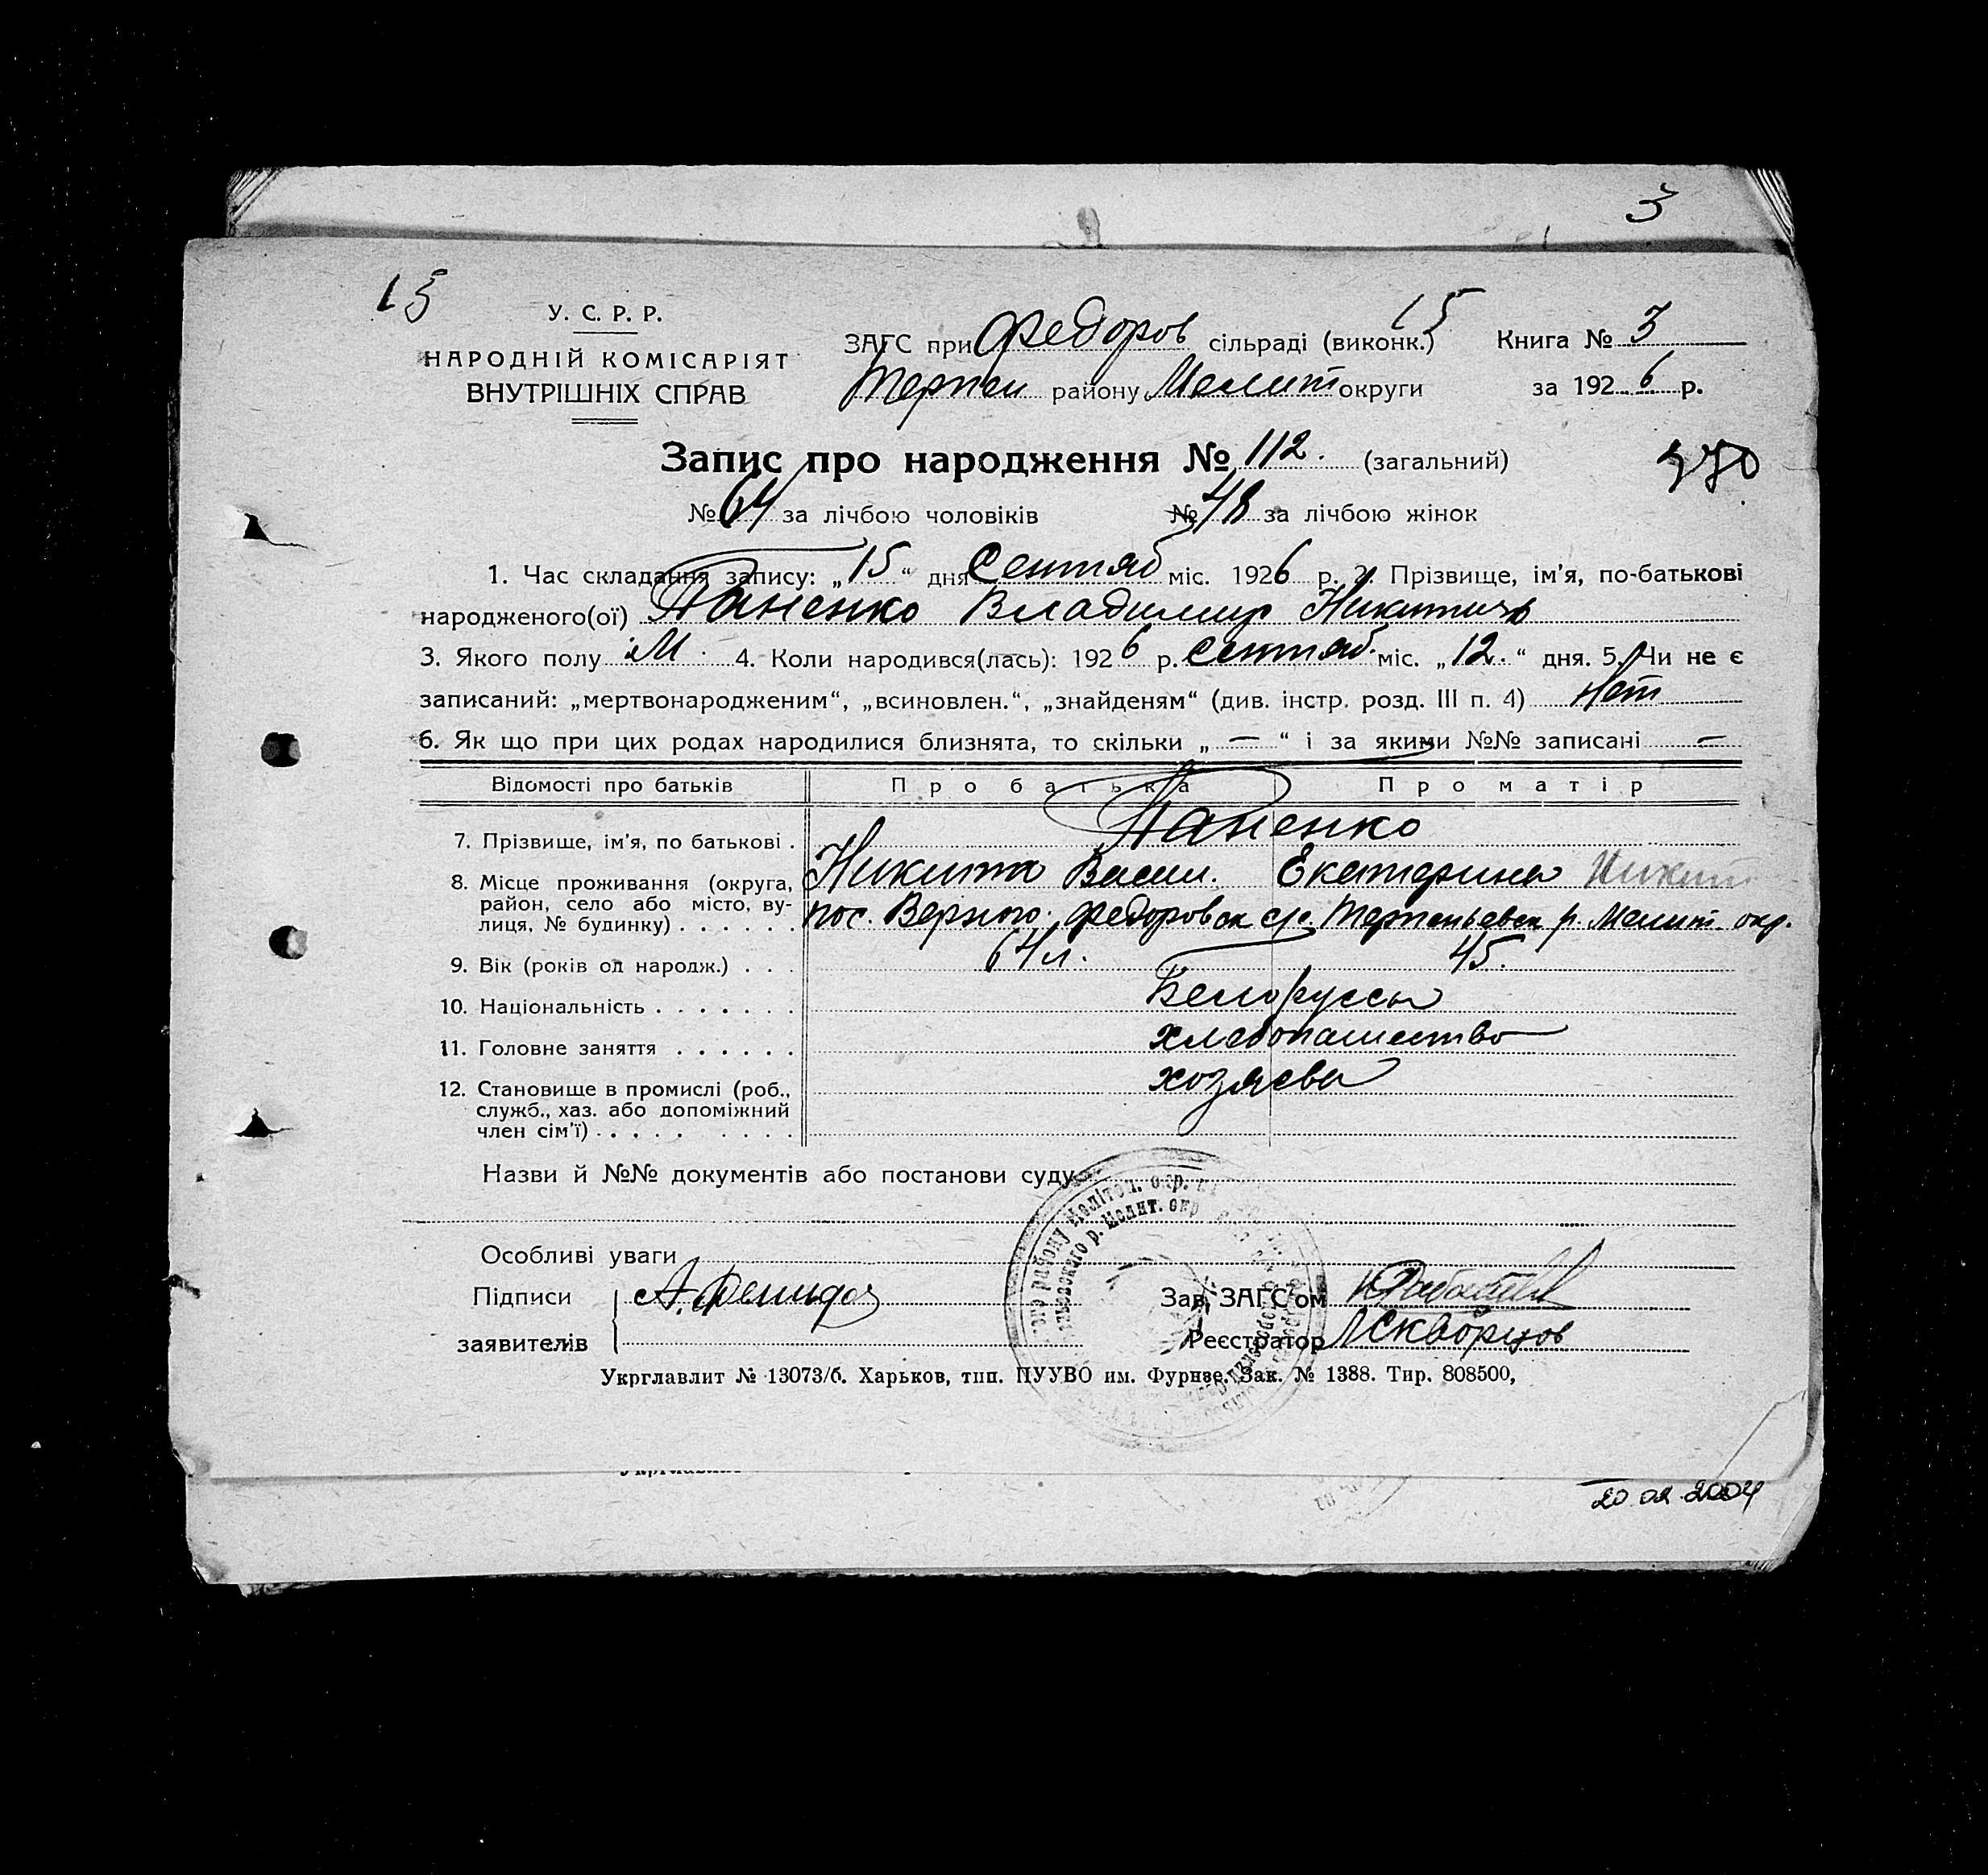 3
15
У. С. Р. Р.
НАРОДНІЙ КОМІСАРІЯТ
ВНУТРІШНІХ СПРАВ
15
ЗАГС при Федоров сільраді (виконк.) Книга № 3
Терпен району Мелит округи за 1926 р.
Запис про народження № 112. (загальний)
370
№ 64 за лічбою чоловіків № 48 за лічбою жінок
1. Час складання запису: „15“ дня Сентяб міс. 1926 р. 2. Прізвище, ім'я, по-батькові
народженого(ої) Паненко Владимир Никитичь
3. Якого полу М. 4. Коли народився(лась): 1926 р. Сентяб. міс. „12.“ дня. 5. Чи не є
записаний: „мертвонародженим“, „всиновлен.“, „знайденям“ (див. інстр. розд. III п. 4) Нет
6. Як що при цих родах народилися близнята, то скільки „—“ і за якими №№ записані —
Відомості про батьків Про батька Про матір
7. Прізвище, ім'я, по батькові . Паненко
Никита Васил. Екатерина Никит
8. Місце проживання (округа,
район, село або місто, ву-
лиця, № будинку) . . . . . . пос. Верхно. Федоровск с/с. Терпеньевск р. Мелит. окр.
9. Вік (років од народж.) . . . 64 л. 45.
10. Національність . . . . . . . Белоруссы
11. Головне заняття . . . . . . хлебопашество
12. Становище в промислі (роб., хозяева
служб., хаз. або допоміжний
член сім'ї) . . . . . . . . .
Назви й №№ документів або постанови суду
Особливі уваги
Підписи
заявителів
Зав. ЗАГС'ом
Реєстратор Скворцов
Укрглавлит № 13073/б. Харьков, тип. ПУУВО им. Фурнзе. Зак. № 1388. Тир. 808500,
20.02.2004